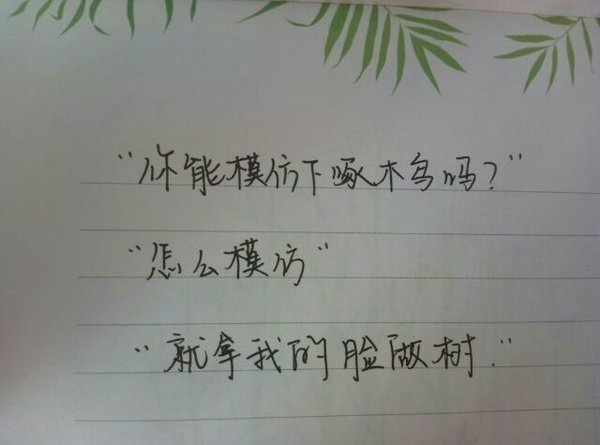 "你能模仿下啄木鸟吗?"
"怎么模仿"
"就拿我的脸做树."